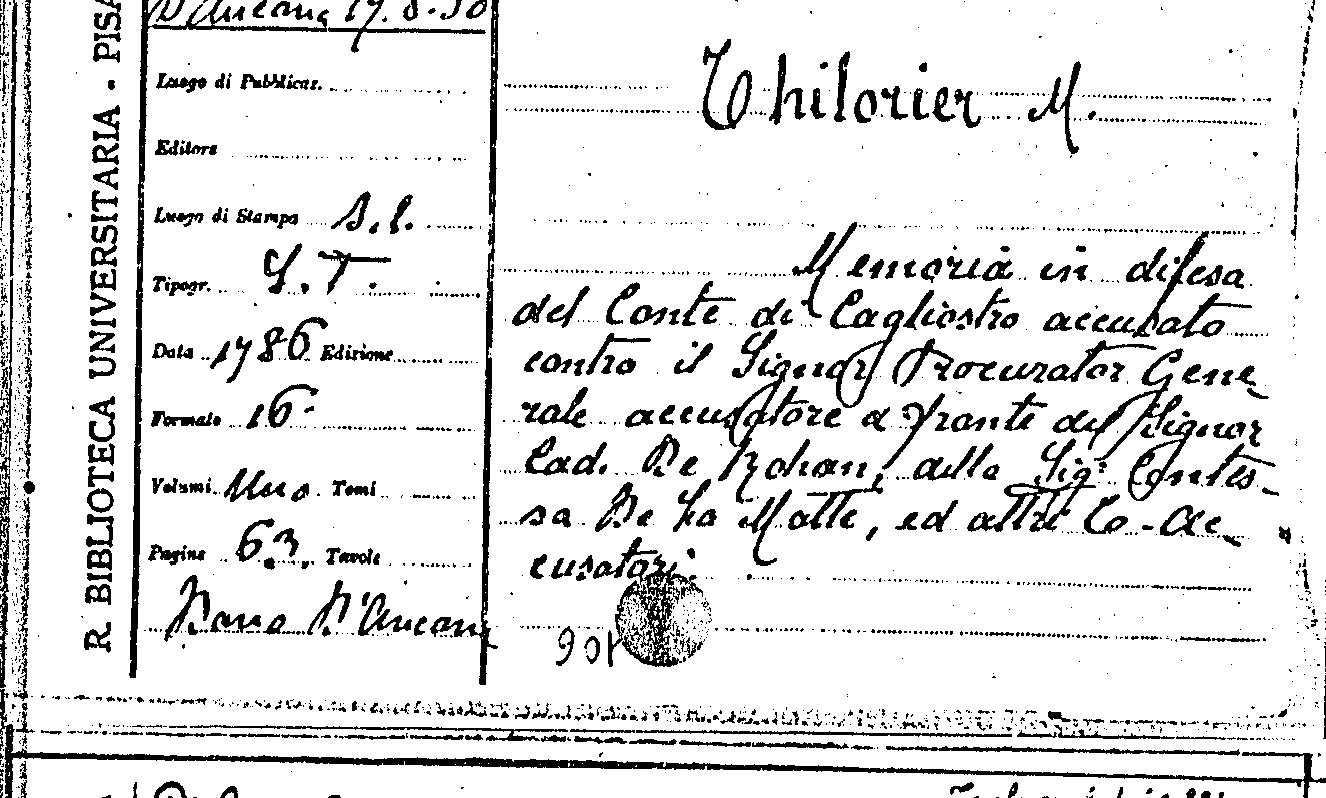 R. BIBLIOTECA UNIVERSITARIA - PISA
D'Ancona 17.8.30
Luogo di Pubblicaz.
Editore
Luogo di Stampa S.l.
Tipogr. S.T.
Data 1786 Edizione
Formato 16º
Volumi Uno Tomi
Pagine 63. Tavole
Dono D'Ancona
Thilorier M.
Memoria in difesa
del Conte di Cagliostro accusato
contro il Signor Procurator Gene-
rale accusatore a fronte del Signor
Cad. De Rohan, della Sigª Contes-
sa De La Motte, ed altri Co-Ac-
cusatori.